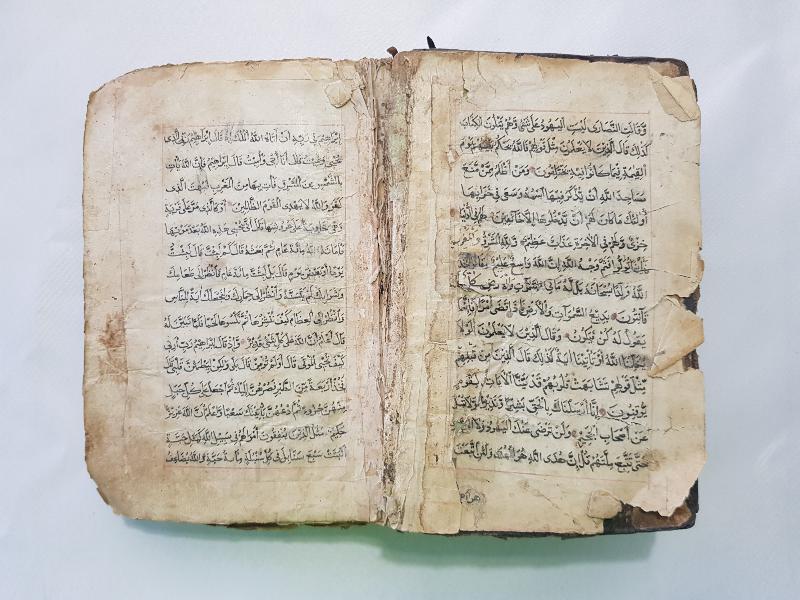 وقالت النصارى ليست اليهود على شيء وهم يتلون الكتاب
كذلك قال الذين لا يعلمون مثل قولهم فالله يحكم بينهم يوم
القيمة فيما كانوا فيه يختلفون ومن أظلم ممن منع
مساجد الله أن يذكر فيها اسمه وسعى في خرابها
أولئك ما كان لهم أن يدخلوها إلا خائفين لهم في الدنيا
خزي ولهم في الآخرة عذاب عظيم ولله المشرق والمغرب
فأينما تولوا فثم وجه الله إن الله واسع عليم وقالوا اتخذ
الله ولدا سبحانه بل له ما في السموات والأرض كل له
قانتون بديع السموات والأرض وإذا قضى أمرا فإنما
يقول له كن فيكون وقال الذين لا يعلمون لولا
يكلمنا الله أو تأتينا آية كذلك قال الذين من قبلهم
مثل قولهم تشابهت قلوبهم قد بينا الآيات لقوم
يوقنون إنا أرسلناك بالحق بشيرا ونذيرا ولا تسئل
عن أصحاب الجحيم ولن ترضى عنك اليهود ولا النصارى
حتى تتبع ملتهم قل إن هدى الله هو الهدى ولئن اتبعت
إبراهيم في ربه أن آتاه الله الملك إذ قال إبراهيم ربي الذي
يحيي ويميت قال أنا أحيي وأميت قال إبراهيم فإن الله يأتي
بالشمس من المشرق فأت بها من المغرب فبهت الذي
كفر والله لا يهدي القوم الظالمين أو كالذي مر على قرية
وهي خاوية على عروشها قال أنى يحيي هذه الله بعد موتها
فأماته الله مائة عام ثم بعثه قال كم لبثت قال لبثت
يوما أو بعض يوم قال بل لبثت مائة عام فانظر إلى طعامك
وشرابك لم يتسنه وانظر إلى حمارك ولنجعلك آية للناس
وانظر إلى العظام كيف ننشزها ثم نكسوها لحما فلما تبين له
قال أعلم أن الله على كل شيء قدير وإذ قال إبراهيم رب أرني
كيف تحيي الموتى قال أولم تؤمن قال بلى ولكن ليطمئن قلبي قال
فخذ أربعة من الطير فصرهن إليك ثم اجعل على كل جبل
منهن جزءا ثم ادعهن يأتينك سعيا واعلم أن الله عزيز
حكيم مثل الذين ينفقون أموالهم في سبيل الله كمثل حبة
أنبتت سبع سنابل في كل سنبلة مائة حبة والله يضاعف